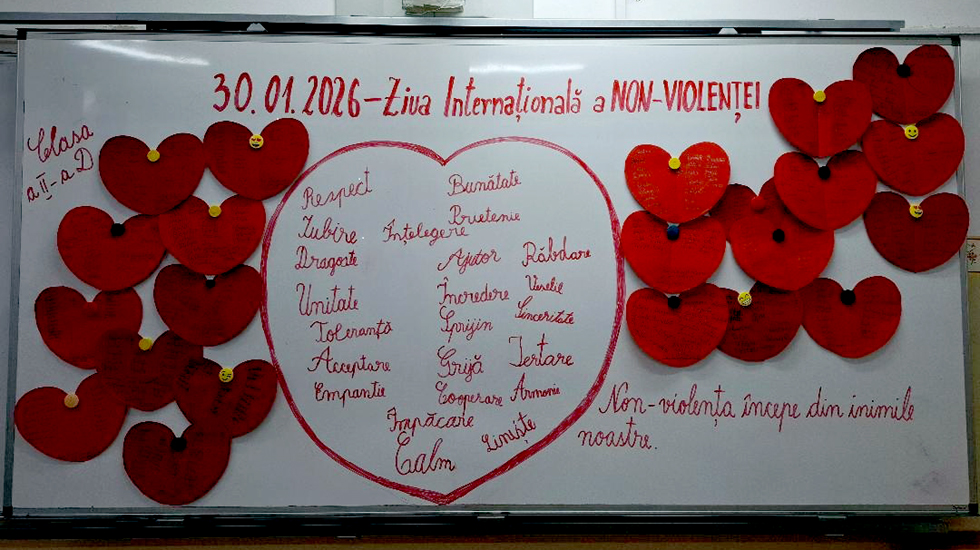 30.01.2026-Ziua Internațională a NON-VIOLENȚEI
Clasa
a II-a D
Respect
Bunătate
Iubire
Prietenie
Înțelegere
Dragoste
Ajutor
Răbdare
Unitate
Încredere
Veselie
Toleranță
Sprijin
Sinceritate
Acceptare
Grijă
Iertare
Empatie
Cooperare
Armonie
Împăcare
Liniște
Calm
Non-violența începe din inimile
noastre.